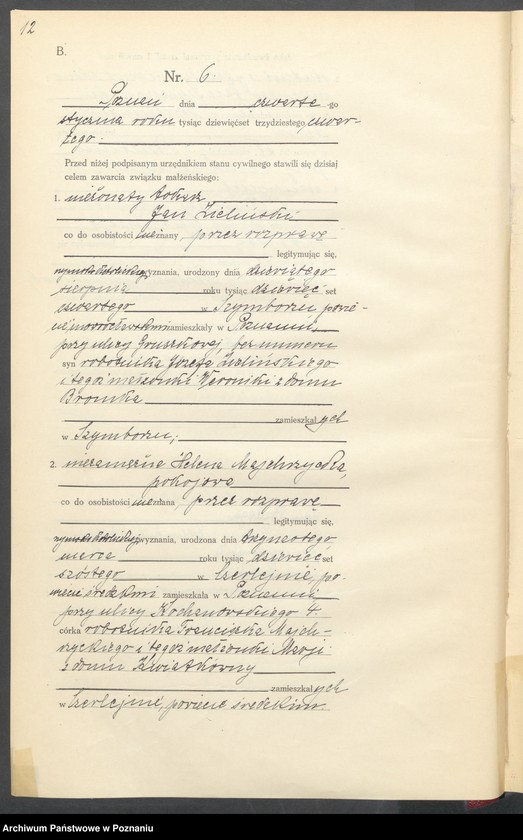 12
B.
Nr. 6.
Poznań dnia czwarte go
stycznia roku tysiąc dziewięćset trzydziestego czwar-
tego.
Przed niżej podpisanym urzędnikiem stanu cywilnego stawili się dzisiaj
celem zawarcia związku małżeńskiego:
1. nieżonaty tokarz
Jan Zieliński
co do osobistości nieznany, przez rozprawę
legitymując się,
rzymskokatolickiego wyznania, urodzony dnia dziewiątego
sierpnia roku tysiąc dziewięć set
czwartego w Szymborzu, powie-
cie inowrocławskim zamieszkały w Poznaniu,
przy ulicy bez numeru
syn robotnika Józefa Zielińskiego
i tegoż małżonki Weroniki z domu
Bronka
zamieszkałych
w Szymborzu;
2. niezamężna Helena Majchrzycka,
pokojowa
co do osobistości nieznana, przez rozprawę
legitymując się,
rzymskokatolickiego wyznania, urodzona dnia trzynastego
marca roku tysiąc dziewięć set
szóstego w Czerlejnie, po-
wiecie średzkim zamieszkała w Poznaniu
przy ulicy Kochanowskiego 4
córka robotnika Franciszka Majch-
rzyckiego i tegoż małżonki Marji
z domu Kwiatkowny
zamieszkałych
w Czerlejnie, powiecie średzkim.
Archiwum Państwowe w Poznaniu